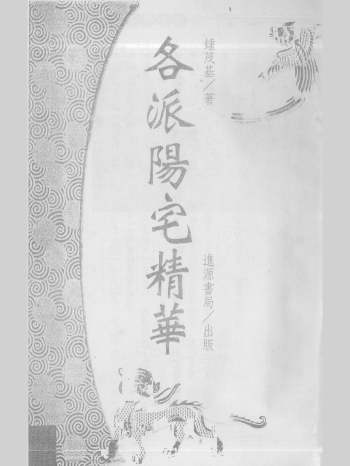 各派陽宅精華
鍾茂基／著
進源書局／出版